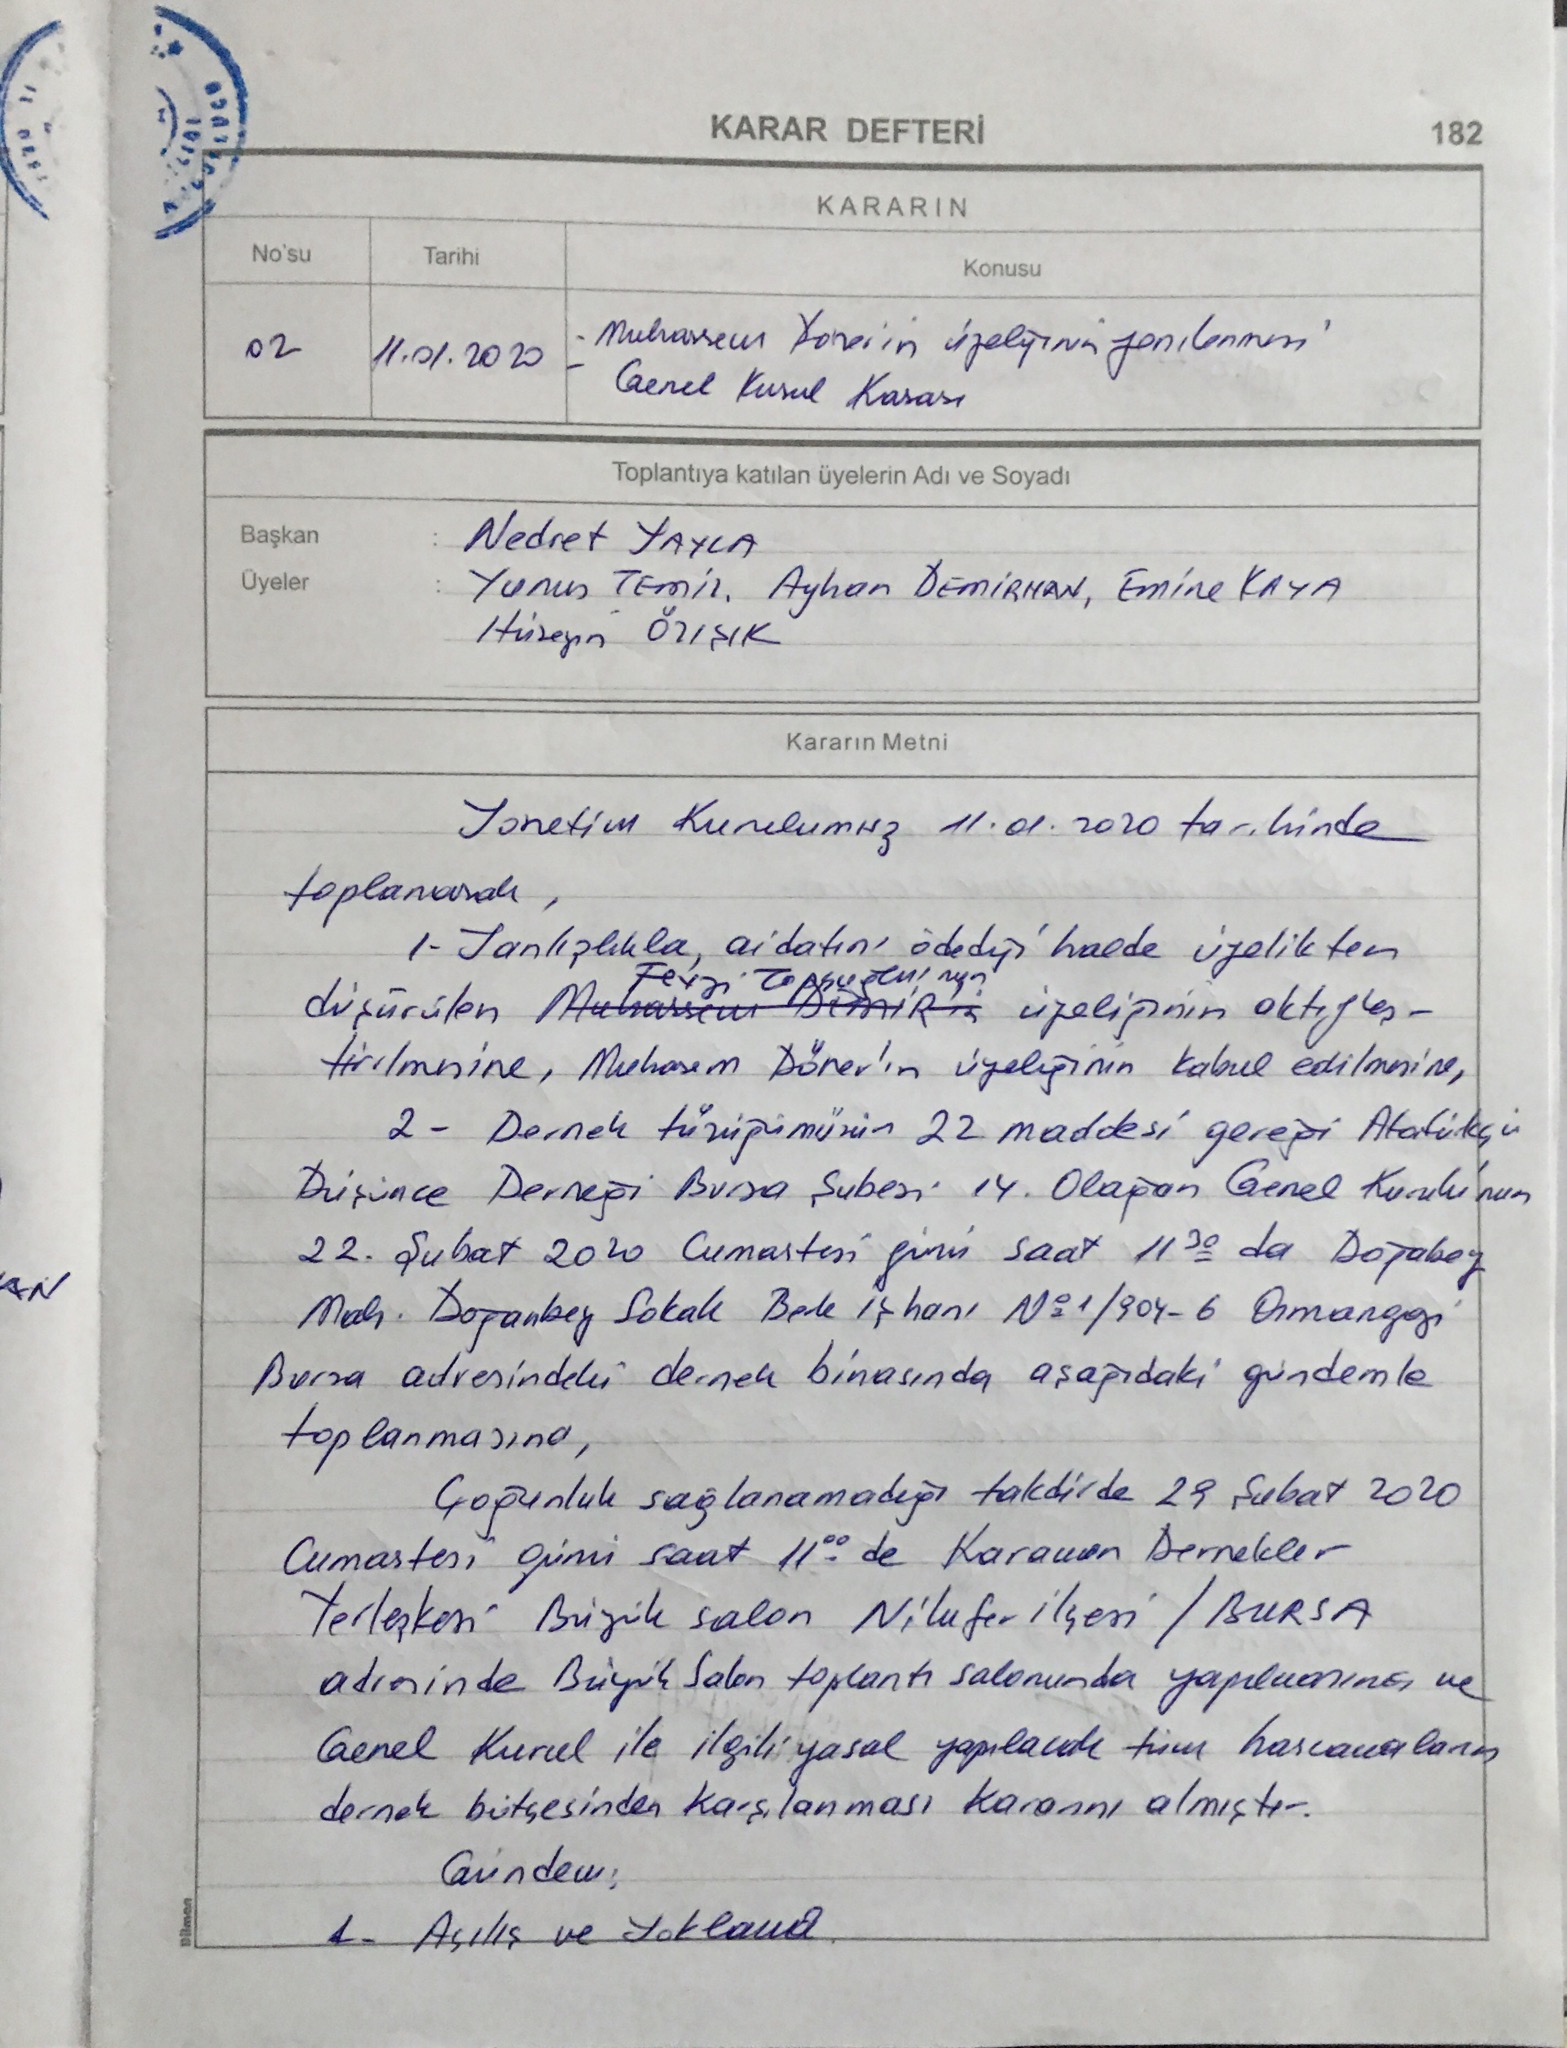 KARAR DEFTERİ
182
KARARIN
No'su
Tarihi
Konusu
02
11.01.2020
- Muharrem Döner'in üyeliğinin yenilenmesi
- Genel Kurul Kararı
Toplantıya katılan üyelerin Adı ve Soyadı
Başkan : Nedret YAYLA
Üyeler : Yunus TEMİZ, Ayhan DEMİRHAN, Emine KAYA
Hüseyin ÖZIŞIK
Kararın Metni
Yönetim Kurulumuz 11.01.2020 tarihinde
toplanarak,
1- Yanlışlıkla, aidatını ödediği halde üyelikten
Fevzi
düşürülen Muharrem DEMİR'in üyeliğinin aktifleş-
tirilmesine, Muharem Döner'in üyeliğinin kabul edilmesine,
2- Dernek tüzüğümüzün 22 maddesi gereği Atatürkçü
Düşünce Derneği Bursa Şubesi 14. Olağan Genel Kurulu'nun
22. Şubat 2020 Cumartesi günü saat 11 30 da Doğabey
Mah. Doğanbey Sokak Berk işhanı No 1/904-6 Osmangazi
Bursa adresindeki dernek binasında aşağıdaki gündemle
toplanmasına,
Çoğunluk sağlanamadığı takdirde 29 Şubat 2020
Cumartesi günü saat 11 00 de Karaman Dernekler
Yerleşkesi Büyük salon Nilüfer ilçesi / BURSA
adresinde Büyük Salon toplantı salonunda yapılmasına ve
Genel Kurul ile ilgili yasal yapılacak tüm harcamaların
dernek bütçesinden karşılanması kararını almıştır.
Gündem:
1- Açılış ve Yoklama
Dilman
AN